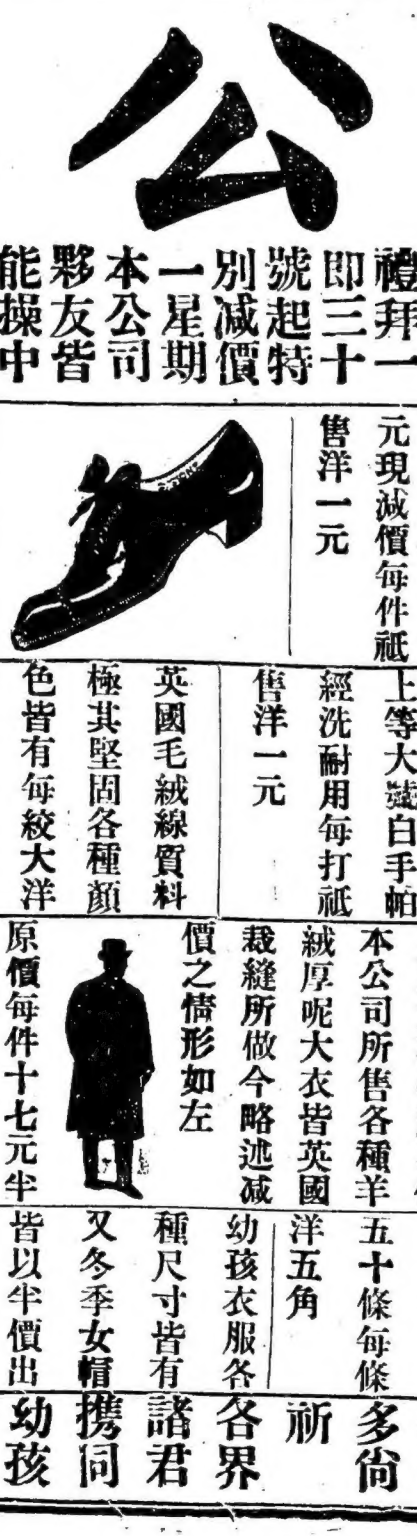 公
禮拜一
即三十
號起特
別減價
一星期
本公司
夥友皆
能操中
元現減價每件祇
售洋一元
上等大號白手帕
經洗耐用每打祇
售洋一元
英國毛絨線質料
極其堅固各種顏
色皆有每絞大洋
本公司所售各種羊
絨厚呢大衣皆英國
裁縫所做今略述減
價之情形如左
原價每件十七元半
五十條每條
洋五角
幼孩衣服各
種尺寸皆有
又冬季女帽
皆以半價出
多尙
祈
各界
諸君
携同
幼孩